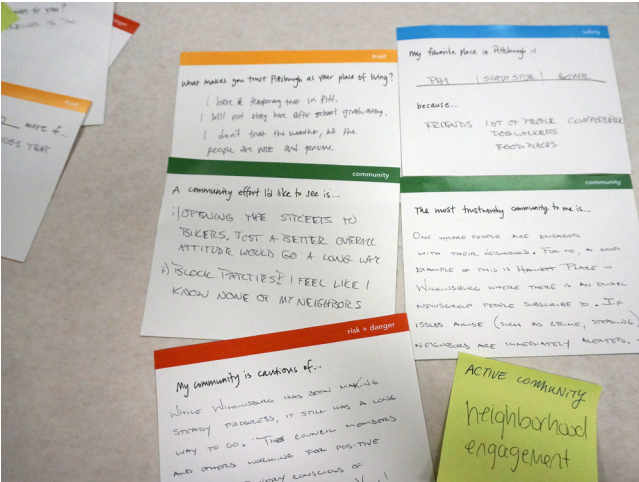 danger
trust
more of...
trust
What makes you trust Pittsburgh as your place of living?
I have a temporary trust in Pitt.
I will not stay here after school graduating.
I don't trust the weather, all the
people are nice and genuine.
safety
My favorite place in Pittsburgh is
SHADYSIDE
because...
FRIENDS LOT OF PEOPLE COMFORTABLE
DOG WALKERS
FOOD PLACES
community
A community effort I'd like to see is...
i) OPENING THE STREETS TO
BIKERS. JUST A BETTER OVERALL
ATTITUDE WOULD GO A LONG WAY
ii) BLOCK PARTIES? I FEEL LIKE I
KNOW NONE OF MY NEIGHBORS
community
The most trustworthy community to me is...
ONE WHERE PEOPLE ARE ENGAGED
WITH THEIR NEIGHBORS. FOR ME, A GOOD
EXAMPLE OF THIS IS HAMNETT PLACE IN
WILKINSBURG WHERE THERE IS AN EMAIL
NEWSGROUP PEOPLE SUBSCRIBE TO. IF
ISSUES ARISE (SUCH AS CRIME, STEALING)
NEIGHBORS ARE IMMEDIATELY ALERTED.
risk + danger
My community is cautious of...
WHILE WILKINSBURG HAS BEEN MAKING
STEADY PROGRESS, IT STILL HAS A LONG
WAY TO GO. THE COUNCIL MEMBERS
AND OTHERS WORKING FOR POSITIVE
VERY CONSCIOUS OF
ACTIVE COMMUNITY
neighborhood
engagement